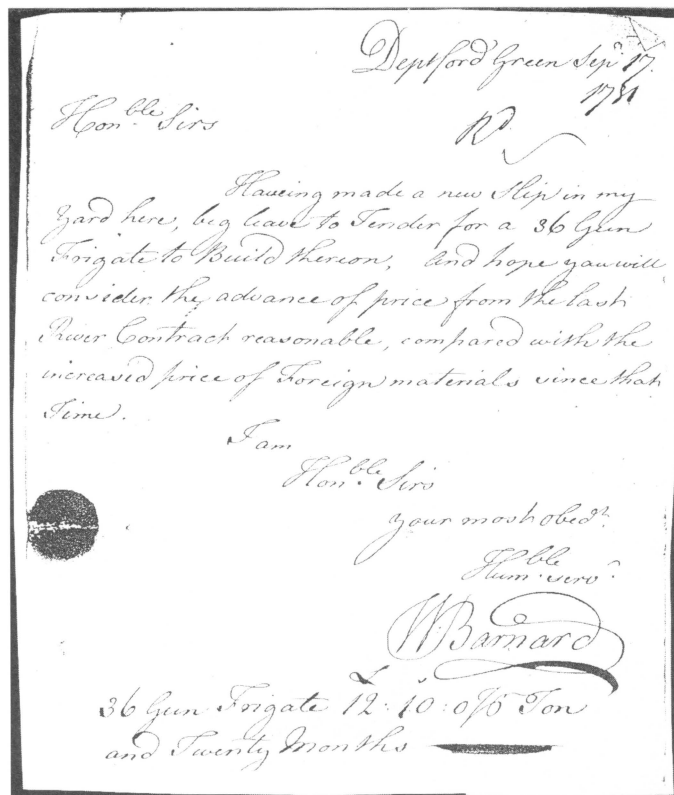 Deptford Green Sepr 17.
Honble Sirs
Rd
Haveing made a new Slip in my
Yard here, beg leave to Tender for a 36 Gun
Frigate to Build thereon, and hope you will
consider the advance of price from the last
River Contract reasonable, compared with the
increased price of Foreign materials since that
Time.
I am
Honble Sirs
your most obedt
Humble servt
W Barnard
£ s
36 Gun Frigate 12:10:0 Ton
and Twenty Months